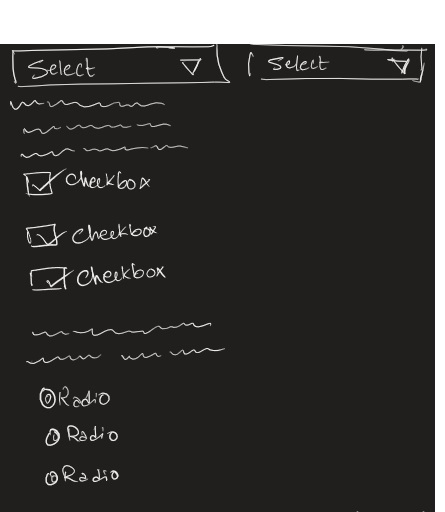 Select Select
Checkbox
Checkbox
Checkbox
Radio
Radio
Radio